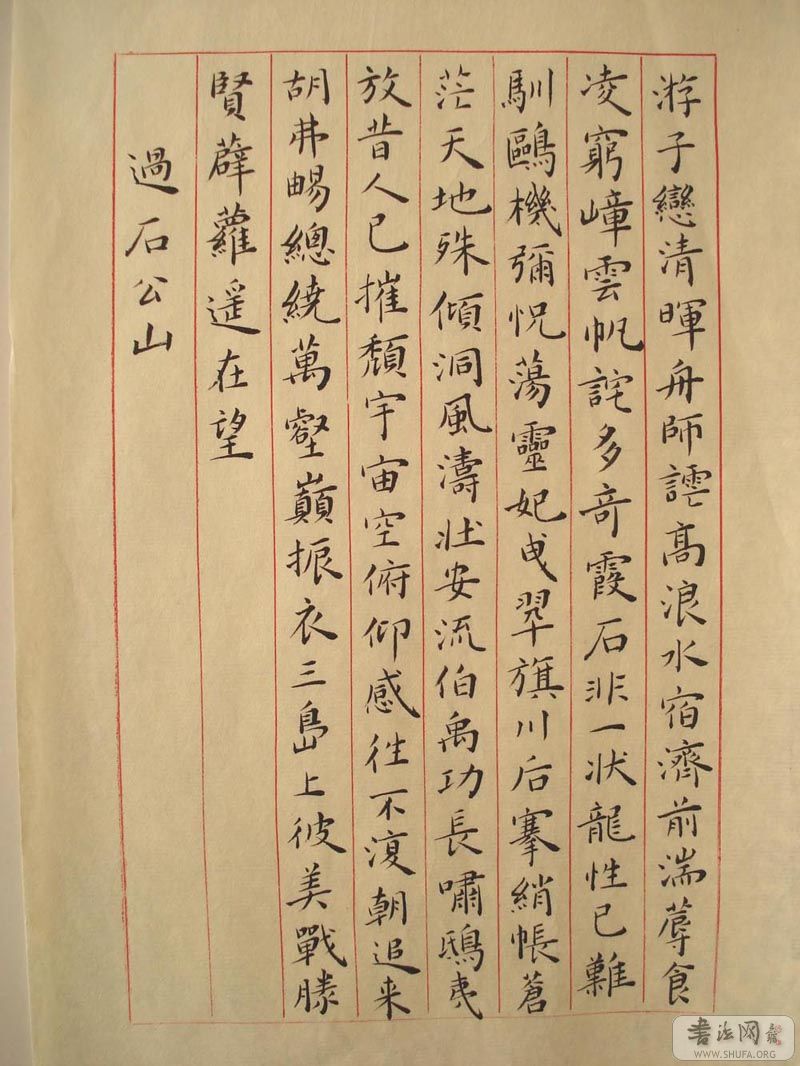 游子戀清暉舟師謔高浪水宿濟前湍蓐食
凌窮嶂雲帆詫多奇霞石非一狀龍性已難
馴鷗機彌怳蕩靈妃曳翠旗川后搴綃帳蒼
茫天地殊傾洞風濤壯安流伯禹功長嘯鴟夷
放昔人已摧頹宇宙空俯仰感往不復朝追来
胡弗暢總繞萬壑巔振衣三島上彼美戰勝
賢薜蘿遥在望
過石公山
书法网
WWW.SHUFA.ORG